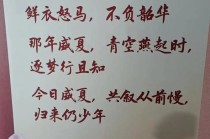 鲜衣怒马，不负韶华
那年盛夏，青空燕起时，
逐梦行且知
今日盛夏，共叙从前慢，
归来仍少年